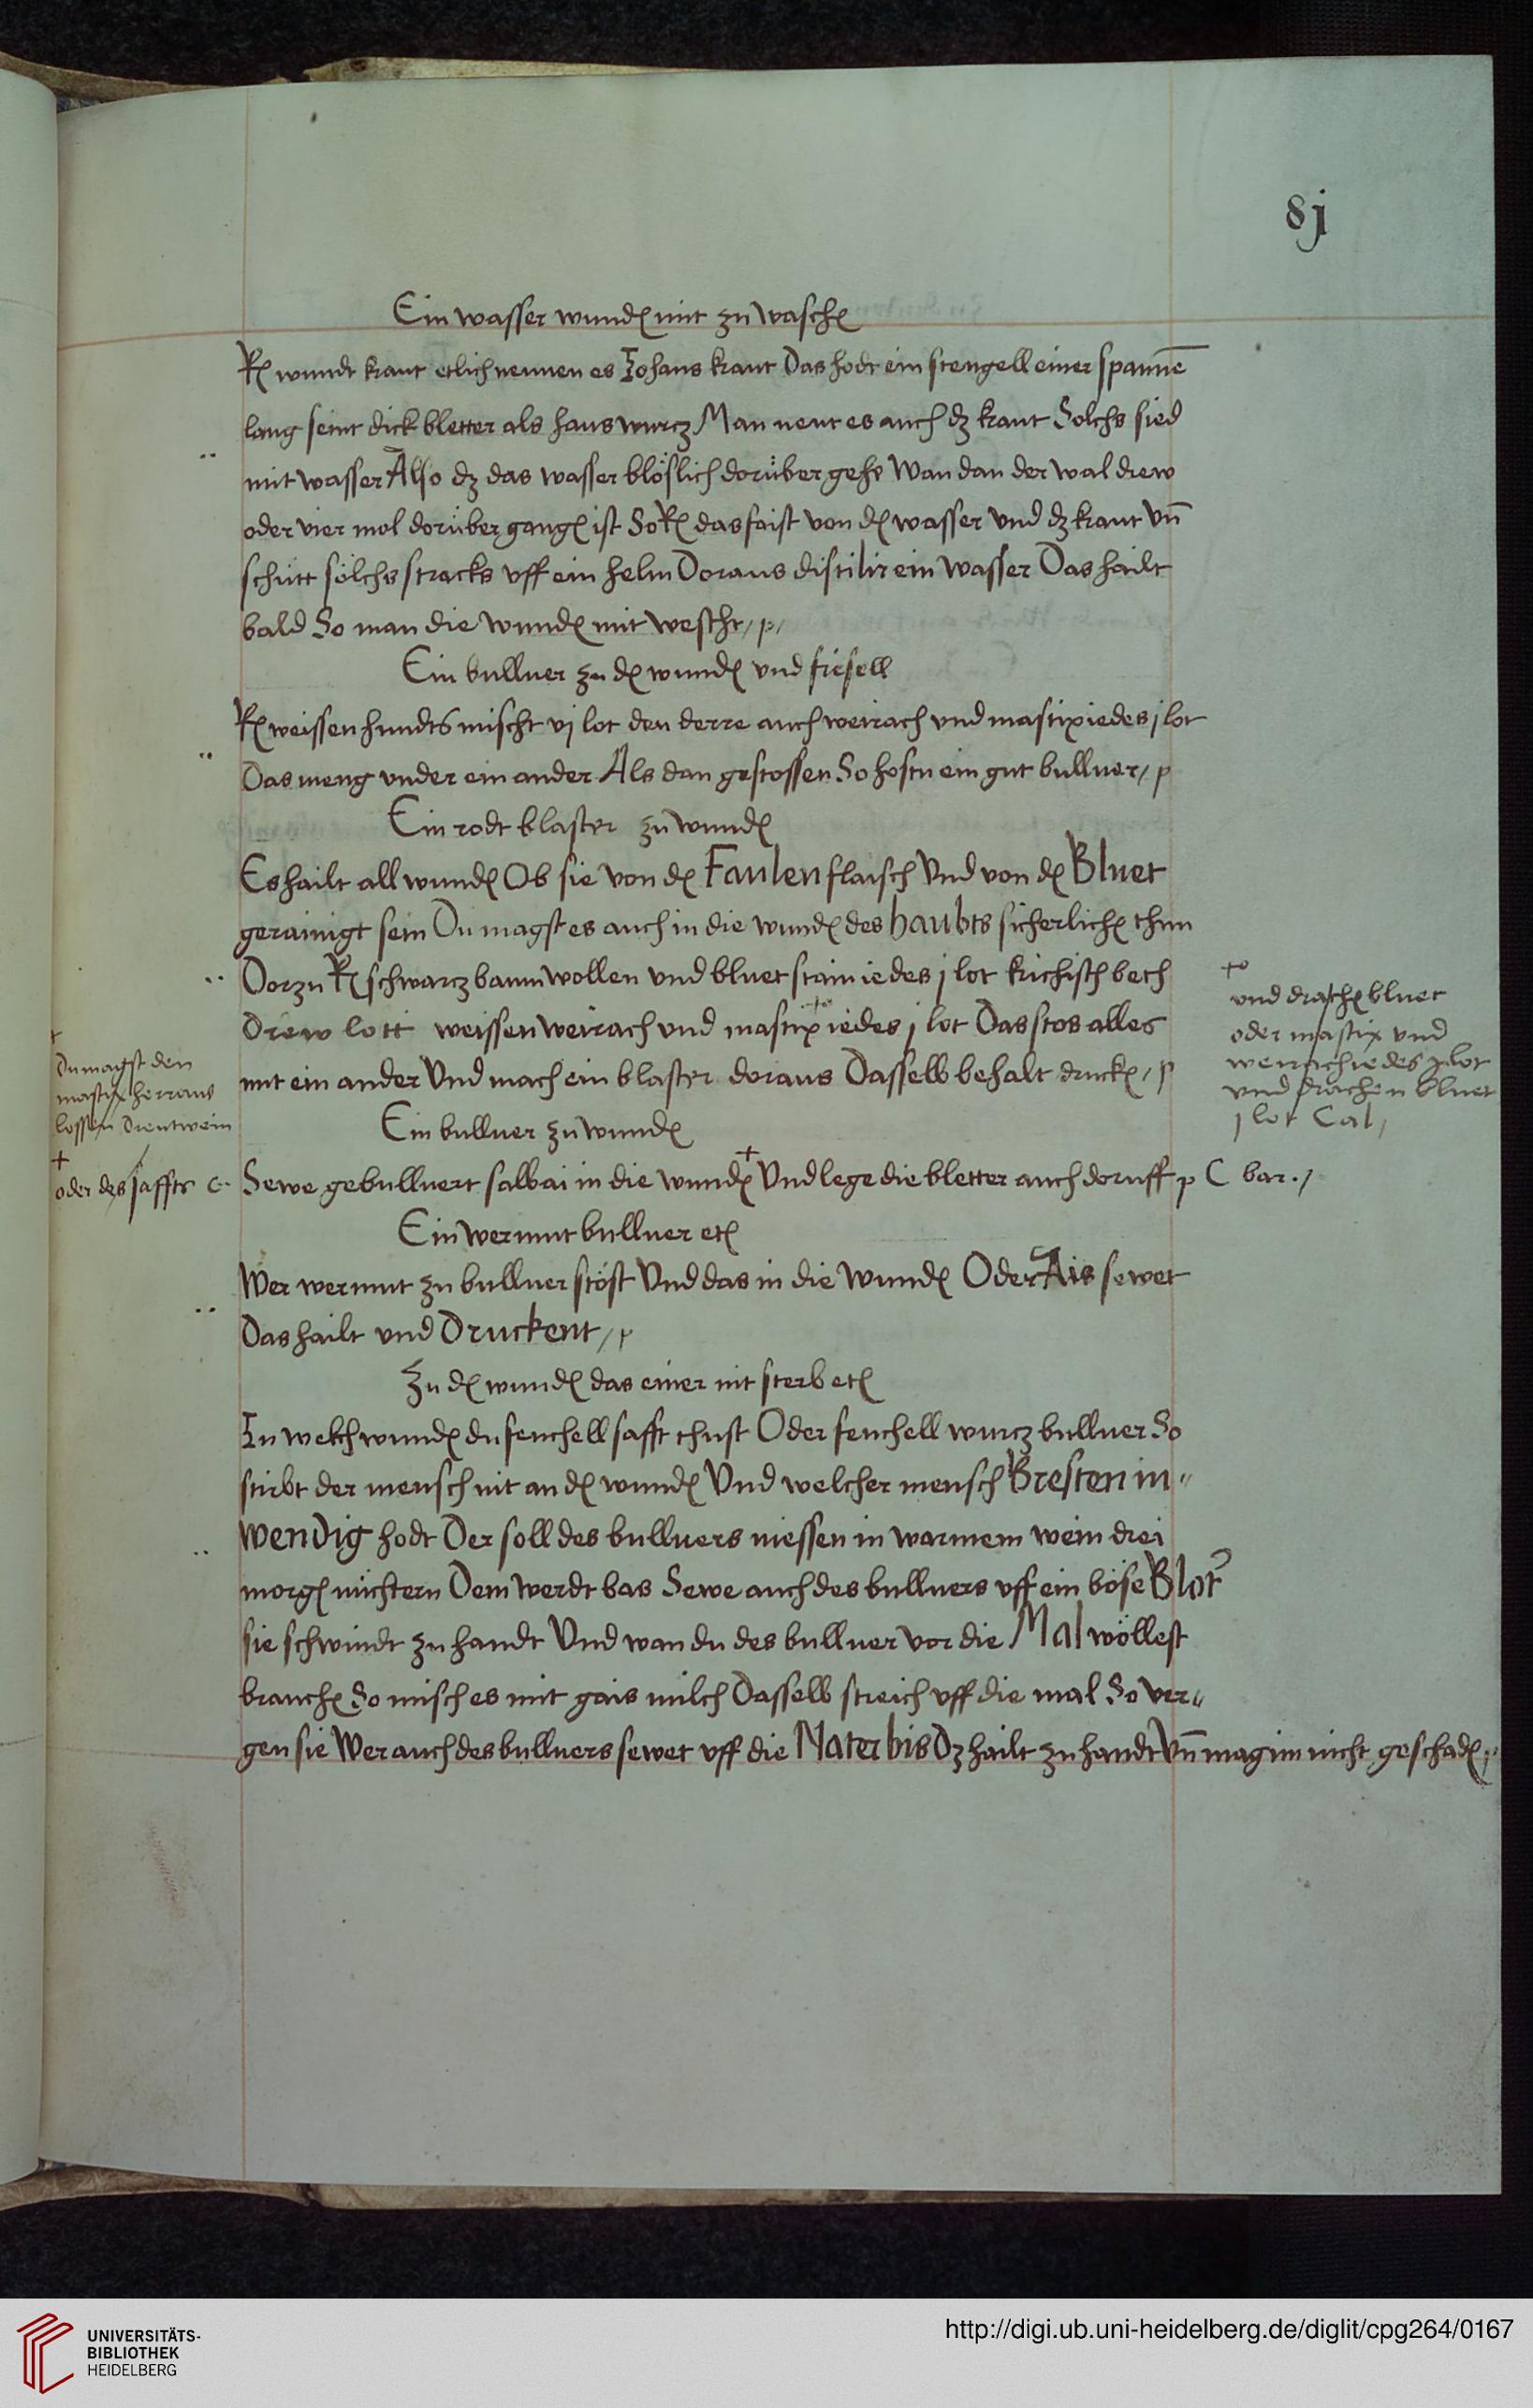 8j
Ein wasser wunden mit zu waschen
Re wundt kraut etlich nennen es Johans kraut Das hodt ein stengell einer spannē
lang seint dick bletter als hauswurcz Man nent es auch dz kraut Solchs sied
mit wasser Also dz das wasser blöslich dorüber gehe Wan dan der wal drew
oder vier mol dorüber gangen ist So Re das faist von den wasser vnd dz kraut vn̄
schütt sölchs stracks vff ein helm Doraus distilir ein wasser Das hailt
bald So man die wunden mit wescht, p,
Ein bulluer zu den wunden vnd fiesell
Re weissen hundts mischt vj lot den derre auch weirach vnd mastix iedes j lot
Das meng vnder ein ander Als dan gestossen So hostu ein gut bulluer, p
Ein rodt blaster zu wunden
Es hailt all wunden Ob sie von den Faulen flaisch Vnd von den Bluet
gerainigt sein Du magst es auch in die wunden des haubts sicherlichen thun
Dorzu Re schwarcz baumwollen vnd bluet stain iedes j lot krichisch bech
Drew lott weissen weirach vnd mastix iedes j lot Das stos alles
mit ein ander Vnd mach ein blaster doraus Dasselb behalt drucken, p
+o
vnd drachen bluet
oder mastix vnd
weirach iedes j lot
vnd drachen bluet
j lot Cal,
+
Du magst den
mastix herraus
lossen
Ein bulluer zu wunden
+
oder des saffts c.
Sewe gebulluert salbai in die wunden + Vnd lege die bletter auch doruff p C bar.,
Ein wermut bulluer etc
Wer wermut zu bulluer stöst Vnd das in die wunden Oder Ais sewet
Das hailt vnd Druckent, p
Zu den wunden das einer nit sterb etc
In welch wunden du fenchell safft thust Oder fenchell wurcz bulluer So
stirbt der mensch nit an den wunden Vnd welcher mensch Bresten in"
wendig hodt Der soll des bulluers niessen in warmem wein drei
morgen nüchtern Dem werdt bas Sewe auch des bulluers vff ein böse Blot'
sie schwindt zu handt Vnd wan du des bulluer vor die Mal wöllest
brauchen So misch es mit gais milch Dasselb streich vff die mal So ver"
gen sie Wer auch des bulluers sewet vff die Nater bis Dz hailt zu handt Vn̄ mag im nicht geschaden, p
UNIVERSITÄTS-
BIBLIOTHEK
HEIDELBERG
http://digi.ub.uni-heidelberg.de/diglit/cpg264/0167